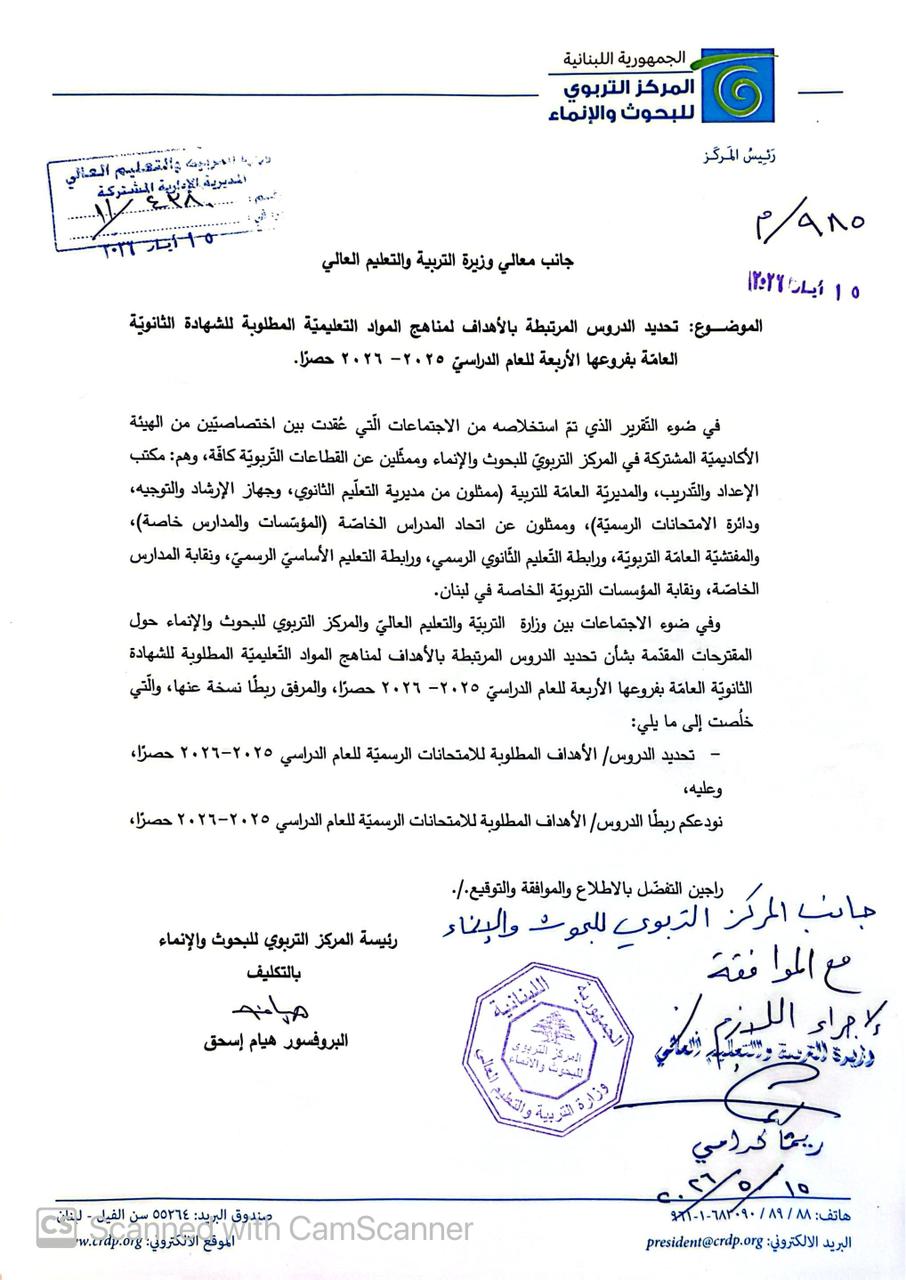 الجمهورية اللبنانية
المركز التربوي
للبحوث والإنماء
رَئيسُ المَركَز
والتعليم العالي
المديرية الإدارية المشتركة
١١/٤٣٨٠
١٥ أيار ٢٠٢٦
٩٨٥/م
١٥ أيار ٢٠٢٦
جانب معالي وزيرة التربية والتعليم العالي
الموضـــوع: تحديد الدروس المرتبطة بالأهداف لمناهج المواد التعليميّة المطلوبة للشهادة الثانويّة
العامّة بفروعها الأربعة للعام الدراسيّ ٢٠٢٥- ٢٠٢٦ حصرًا.
في ضوء التّقرير الذي تمّ استخلاصه من الاجتماعات الّتي عُقدت بين اختصاصيّين من الهيئة
الأكاديميّة المشتركة في المركز التربويّ للبحوث والإنماء وممثّلين عن القطاعات التّربويّة كافّة، وهم: مكتب
الإعداد والتّدريب، والمديريّة العامّة للتربية (ممثلون من مديرية التعلّيم الثانوي، وجهاز الإرشاد والتوجيه،
ودائرة الامتحانات الرسميّة)، وممثلون عن اتحاد المدراس الخاصّة (المؤسّسات والمدارس خاصة)،
والمفتشيّة العامّة التربويّة، ورابطة التّعليم الثّانوي الرسمي، ورابطة التعليم الأساسيّ الرسميّ، ونقابة المدارس
الخاصّة، ونقابة المؤسسات التربويّة الخاصة في لبنان.
وفي ضوء الاجتماعات بين وزارة التربيّة والتعليم العاليّ والمركز التربوي للبحوث والإنماء حول
المقترحات المقدّمة بشأن تحديد الدروس المرتبطة بالأهداف لمناهج المواد التّعليميّة المطلوبة للشهادة
الثانويّة العامّة بفروعها الأربعة للعام الدراسيّ ٢٠٢٥- ٢٠٢٦ حصرًا، والمرفق ربطًا نسخة عنها، والّتي
خلُصت إلى ما يلي:
- تحديد الدروس/ الأهداف المطلوبة للامتحانات الرسميّة للعام الدراسي ٢٠٢٥-٢٠٢٦ حصرًا،
وعليه،
نودعكم ربطًا الدروس/ الأهداف المطلوبة للامتحانات الرسميّة للعام الدراسي ٢٠٢٥-٢٠٢٦ حصرًا،
راجين التفضّل بالاطلاع والموافقة والتوقيع./.
جانب المركز التربوي للبحوث والإنماء
مع الموافقة
لإجراء اللازم
وزيرة التربية والتعليم العالي
ريما كرامي
١٥/٥/٢٠٢٦
رئيسة المركز التربوي للبحوث والإنماء
بالتكليف
البروفسور هيام إسحق
الجمهورية اللبنانية
المركز التربوي
للبحوث والانماء
وزارة التربية والتعليم العالي
هاتف: ٨٨ / ٨٩ / ٦٨٢٠٩٠-١-٩٦١
صندوق البريد: ٥٥٢٦٤ سن الفيل - لبنان
البريد الالكتروني: president@crdp.org
الموقع الالكتروني: www.crdp.org
CS Scanned with CamScanner